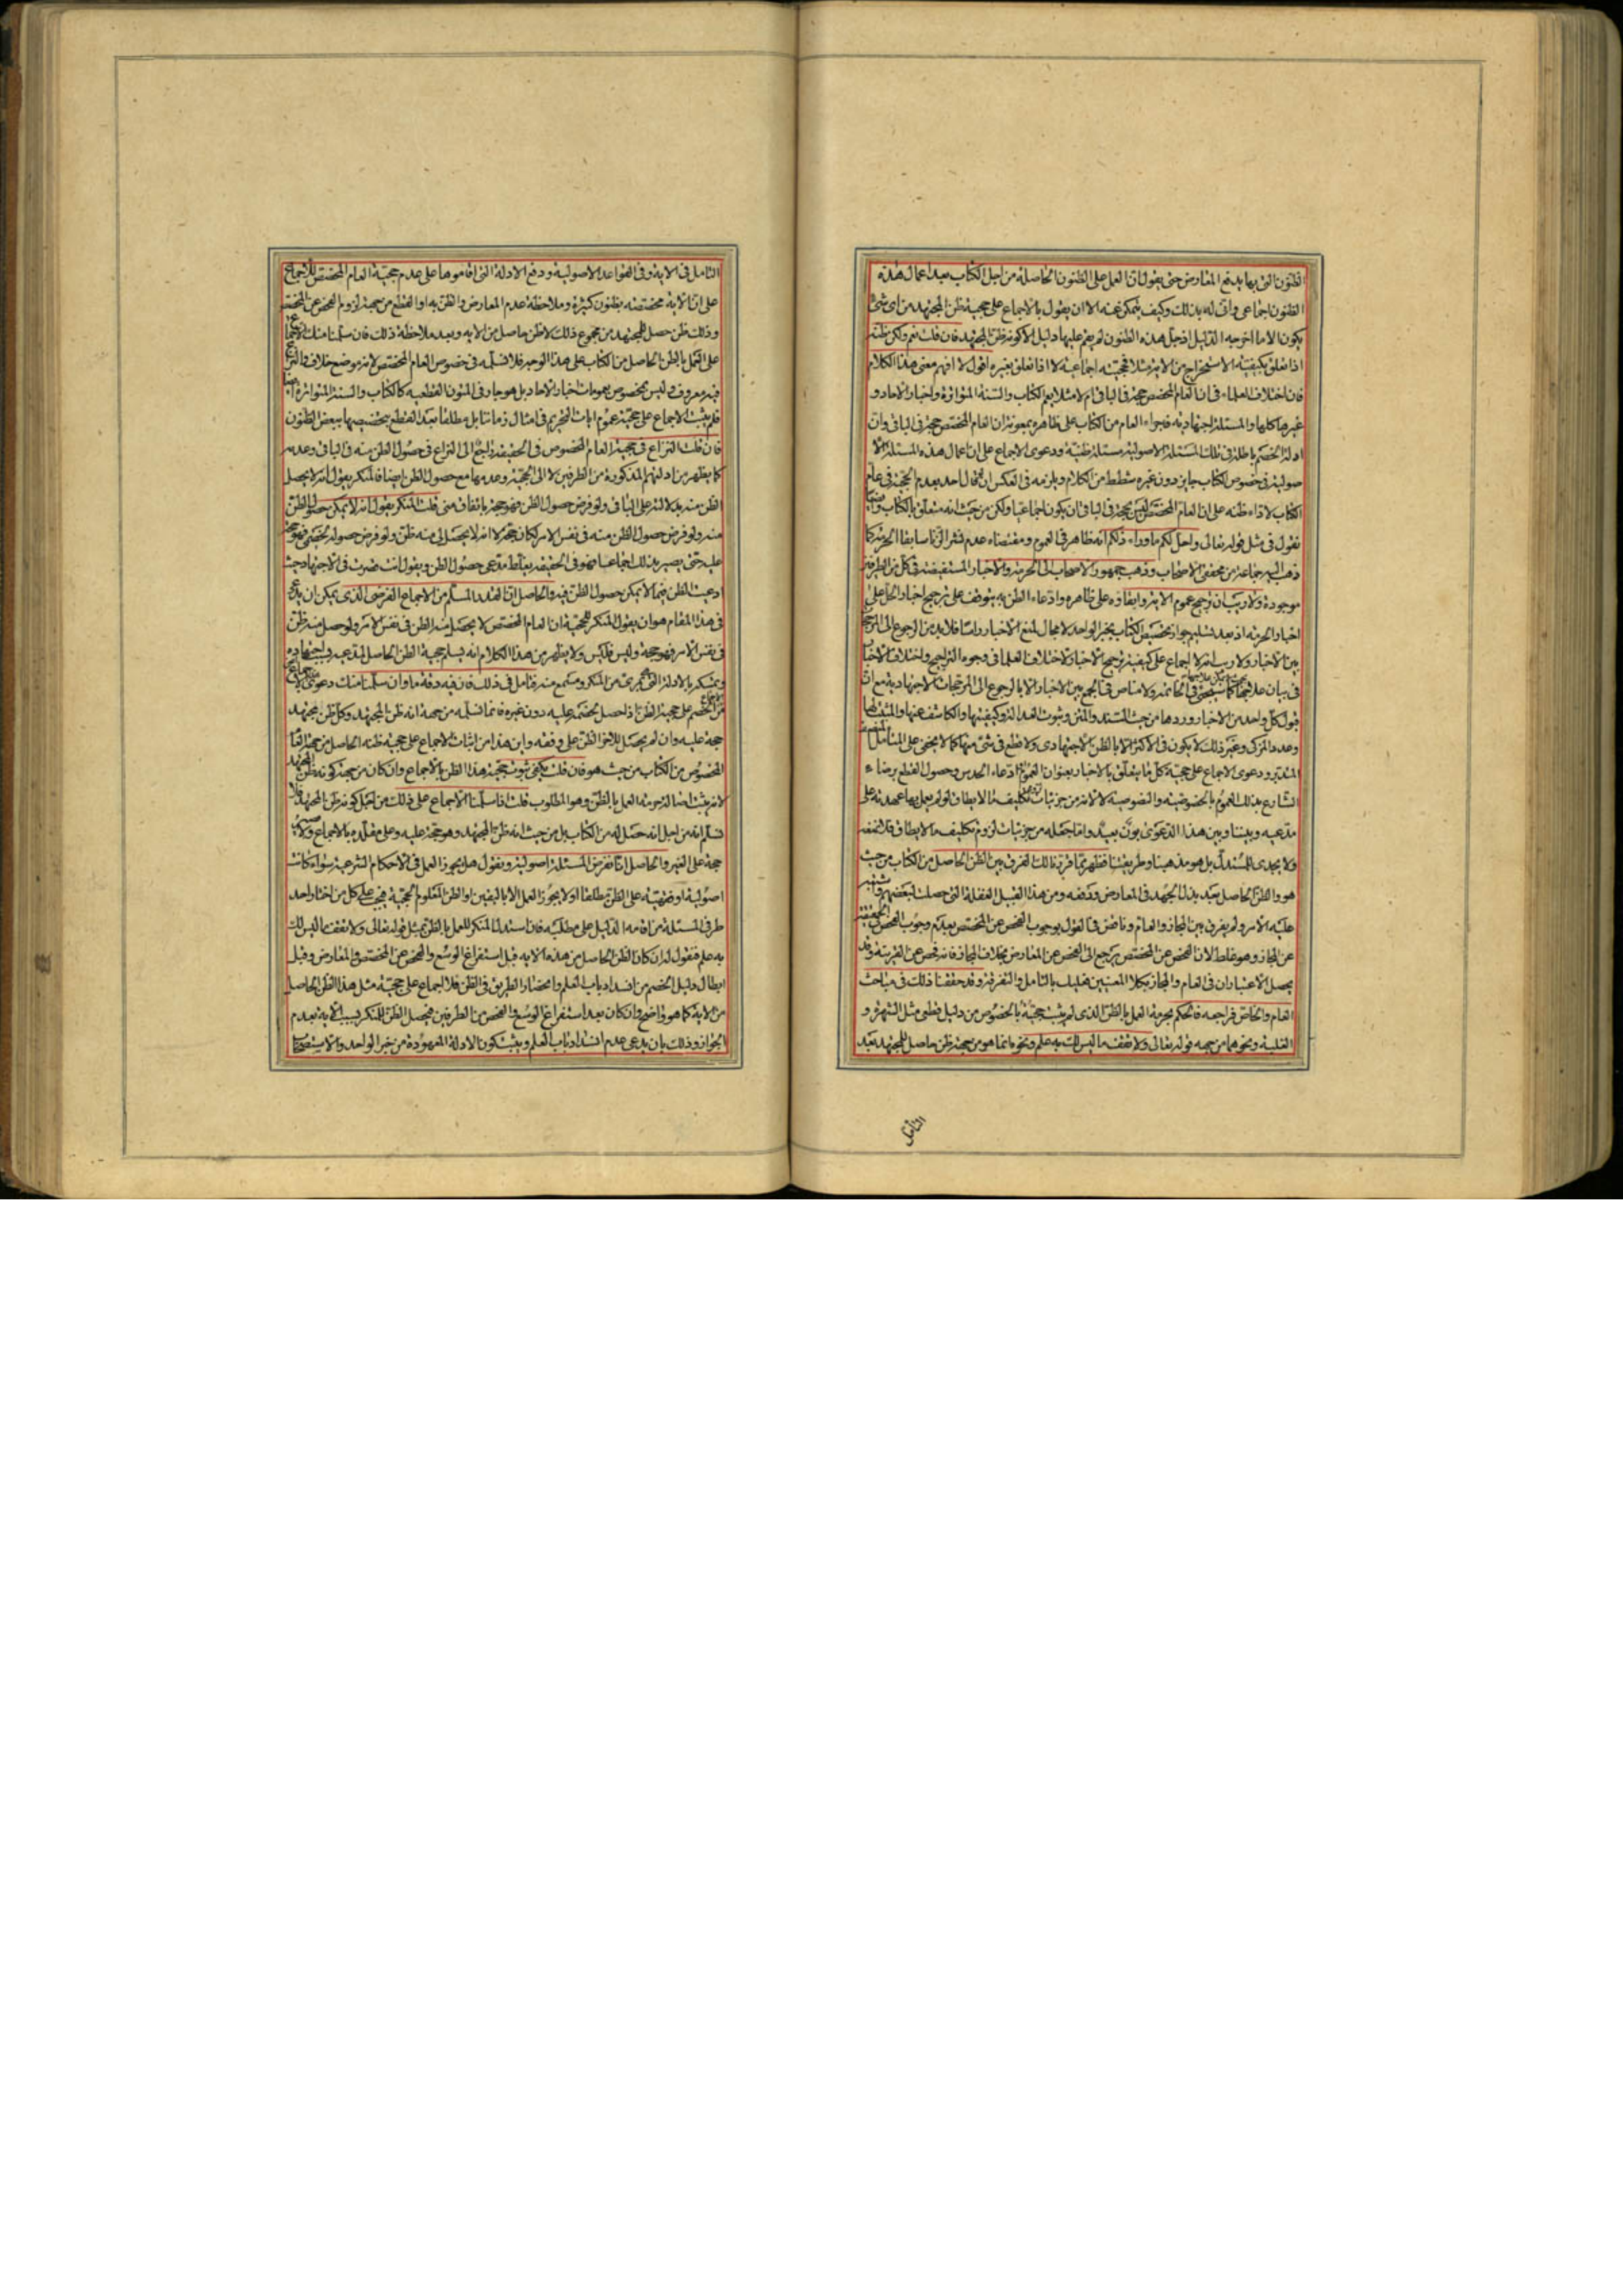 الظنون التى بها يدفع المعارض حتى يقول ان العمل على الظنون الحاصلة من اجل الكتاب بعد اعمال هذه
الظنون اجماعى وانى له بذلك وكيف يتمكن عنه الا ان يقول بالاجماع على حجية ظن المجتهد من اى شئ
يكون الا ما اخرجه الدليل اذ جل هذه الظنون لم يقم عليها دليل الا كونه ظن المجتهد فان قلت نعم ولكن ظنه
اذا تعلق بكيفية الاستخراج من الاية مثلا فحجيته اجماعية لا اذا تعلق بغيره اقول لا افهم معنى هذا الكلام
فان اختلاف العلماء فى ان العام المخصص حجة فى الباقى ام لا مثلا يعم الكتاب والسنة المتواترة واخبار الاحاد و
غيرها كلها والمسئلة اجتهادية فاجراء العام من الكتاب على ظاهره بمعونة ان العام المخصص حجة فى الباقى وان
ادلة الخصم باطلة فى تلك المسئلة الاصولية مسئلة ظنية ودعوى الاجماع على ان اعمال هذه المسئلة الا
صولية فى خصوص الكتاب جايز دون غيره شطط من الكلام ويلزمه فى العكس ان يقال احد بعدم الحجية فى عام
الكتاب لاداء ظنه على ان العام المخصص ليس بحجة فى الباقى ان يكون اجماعيا ولكن من حيث انه متعلق بالكتاب وايضا
نقول فى مثل قوله تعالى واحل لكم ما وراء ذلكم انه ظاهر فى العموم ومقتضاه عدم نشر الزنا سابقا الحرمة كما
ذهب اليه جماعة من محققى الاصحاب وذهب جمهور الاصحاب الى الحرمة والاخبار المستفيضة فى كل من الطرفين
موجودة ولا ريب ان ترجيح عموم الاية وابقاؤه على ظاهره وادعاء الظن به يتوقف على ترجيح اخبار الحل على
اخبار الحرمة اذ بعد تسليم جواز تخصيص الكتاب بخبر الواحد لا مجال لمنع الاخبار راسا فلا بد من الرجوع الى الترجيح
بين الاخبار ولا ريب انه لا اجماع على كيفية ترجيح الاخبار لاختلاف العلما فى وجوه التراجيح واختلاف الاخبار
فى بيان علاجها كما سيجئ فى الخاتمة ولا مناص فى الجمع بين الاخبار الا بالرجوع الى المرجحات الاجتهادية مع ان
قبول كل واحد من الاخبار وردها من حيث السند والمتن وثبوت العدالة وكيفيتها والكاشف عنها والمثبت لها
وعدد المزكى وغير ذلك لا يكون فى الاكثر الا بالظن الاجتهادى ولا قطع فى شئ منها كما لا يخفى على المتامل المنصف
المتدبر ودعوى الاجماع على حجية كل ما يتعلق بالاخبار بعنوان العموم ادعاء الحدس وحصول القطع برضاء
الشارع بذلك العموم بالخصوصية والنصوصية لا لانه من جزئيات تكليف ما لا يطاق لو لم يعمل بها عهدته على
مدعيه وبيننا وبين هذا الدعوى بون بعيد واما جعله من جزئيات لزوم تكليف ما لا يطاق فلا نمنعه
ولا يجدى للمستدل بل هو مذهبنا وطريقتنا فظهر مما قررنا لك الفرق بين الظن الحاصل من الكتاب من حيث
هو والظن الحاصل بعد بذل الجهد فى المعارض ودفعه ومن هذا القبيل الغفلة التى حصلت لبعضهم واشتبه
عليه الامر ولم يفرق بين المجاز والعام وناقض فى القول بوجوب الفحص عن المخصص بعدم وجوب الفحص فى الحقيقة
عن المجاز وهو غلط لان الفحص عن المخصص يرجع الى الفحص عن المعارض بخلاف المجاز فانه فحص عن القرينة وقد
يحصل الاعتباران فى العام والمجاز بكلا المعنيين فعليك بالتامل والتفرقة وقد حققنا ذلك فى مباحث
العام والخاص فراجعه فالحكم بحرمة العمل بالظن الذى لم يثبت حجيته بالخصوص من دليل قطعى مثل الشهرة و
الغلبة ونحوهما من جهة قوله تعالى ولا تقف ما ليس لك به علم ونحوه انما هو من جهة ظن حاصل للمجتهد بعد
التامل
التامل فى الاية وفى القواعد الاصولية ودفع الادلة التى اقاموها على عدم حجية العام المخصص للاجماع
على ان الاية مخصصة بظنون كثيرة وملاحظة عدم المعارض والظن به او القطع من جهة لزوم الفحص عن المخصص
وذلك ظن حصل للمجتهد من مجموع ذلك لا ظن حاصل من الاية وبعد ملاحظة ذلك فان سلمنا منك الاجماع
على العمل بالظن الحاصل من الكتاب على هذا الوجه فلا نسلمه فى خصوص العام المخصص لانه موضع خلاف والنزاع
فيه معروف وليس بمخصوص بعمومات اخبار الاحاد بل هو جار فى المتون القطعية كالكتاب والسنة المتواترة ايضا
فلم يثبت الاجماع على حجية عموم ايات التحريم فى امثال زماننا بل مطلقا بعد القطع بتخصيصها ببعض الظنون
فان قلت النزاع فى حجية العام المخصوص فى الحقيقة راجع الى النزاع فى حصول الظن منه فى الباقى وعدمه
كما يظهر من ادلتهم المذكورة من الطرفين لا الى الحجية وعدمها مع حصول الظن ايضا فالمنكر يقول انه لا يحصل
الظن منه بدلالته على الباقى ولو فرض حصول الظن فهو حجة باتفاق منى قلت المنكر يقول انه لا يمكن حصول الظن
منه ولو فرض حصول الظن منه فى نفس الامر لكان حجة لا انه لا يحصل لى منه ظن ولو فرض حصوله لخصمى فهو حجة
عليه حتى يصير بذلك اجماعيا فهو فى الحقيقة يغلط مدعى حصول الظن ويقول انت قصرت فى الاجتهاد حيث
ادعيت الظن فيما لا يمكن حصول الظن فيه والحاصل ان القدر المسلم من الاجماع الفرضى الذى يمكن ان يدعى
فى هذا المقام هو ان يقول المنكر للحجية ان العام المخصص لا يحصل منه الظن فى نفس الامر ولو حصل منه ظن
فى نفس الامر فهو حجة وليس فليس ولا يظهر من هذا الكلام انه يسلم حجية الظن الحاصل لمدعيه باجتهاده
ويتمسكه بالادلة التى بمرئى من المنكر ومسمع منه فتامل فى ذلك فان فيه دقة ما وان سلمنا منك دعوى الاجماع
من الخصم على حجية الظن اذا حصل لخصمه عليه دون غيره فانما نسلمه من جهة انه ظن المجتهد وكل ظن مجتهد
حجة عليه وان لم يحصل للاخر الظن على وفقه واين هذا من اثبات الاجماع على حجية ظنه الحاصل من جهة العام
المخصوص من الكتاب من حيث هو فان قلت يكفى ثبوت حجية هذا الظن بالاجماع وان كان من جهة كونه ظن المجتهد
لانه يثبت اصالة حرمة العمل بالظن وهو المطلوب قلت اذا سلمنا الاجماع على ذلك من اجل كونه ظن المجتهد فلا
نسلم انه من اجل انه حصل له من الكتاب بل من حيث انه ظن المجتهد وهو حجة عليه وعلى مقلديه بالاجماع ولا
حجة على الغير والحاصل انا نفرض المسئلة اصولية ونقول هل يجوز العمل فى الاحكام الشرعية سواء كانت
اصولية او فقهية على الظن مطلقا او لا يجوز العمل الا باليقين او الظن المعلوم الحجية فيجب على كل من اختار احد
طرفى المسئلة من اقامة الدليل على مطلبه فان استدل المنكر للعمل بالظن بمثل قوله تعالى ولا تقف ما ليس لك
به علم فنقول له ان كان الظن الحاصل من هذه الاية قبل استفراغ الوسع والفحص عن المخصص والمعارض وقبل
ابطال دليل الخصم من انسداد باب العلم وانحصار الطريق فى الظن فلا اجماع على حجية مثل هذا الظن الحاصل
من الاية كما هو واضح وان كان بعد استفراغ الوسع والفحص من الطرفين فيحصل الظن للمنكر بسبب الاية بعدم
الجواز وذلك بان يدعى عدم انسداد باب العلم ويثبت كون الادلة المعهودة من خبر الواحد والاستصحاب